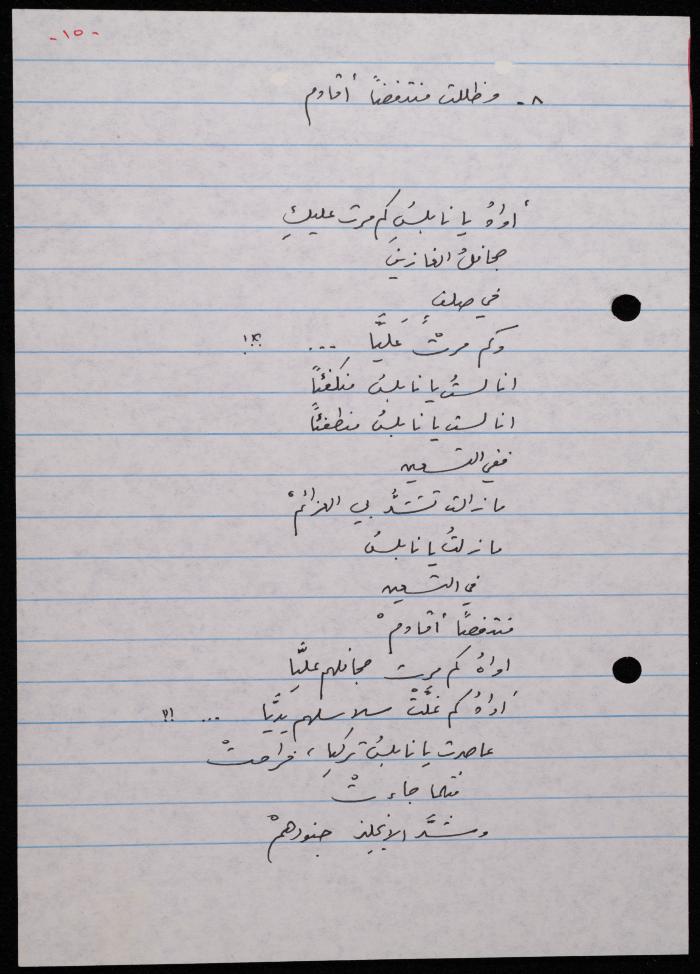 -١٥-
٨- وظللت منتفضاً أقاوم
أواهُ يا نابلسُ كم مرت عليكِ
جحافلُ الغازينَ
في صلفٍ
وكم مرتْ عَليَّا ... ؟!
انا لستُ يا نابلسُ منكفئاً
انا لست يا نابلسُ منطفئاً
ففي التسعين
ما زالت تشتدُّ بي العزائمْ
ما زلتُ يا نابلسُ
في التسعين
منتفضاً أقاومْ
اواهُ كم مرت جحافلهم عليَّا
أواهُ كم غلَّتْ سلاسلهم يديَّا ... !؟
عاصرت يا نابلسُ تركيا ، فراحتْ
مثلما جاءتْ
وشدَّ الإنجليز جنودهمْ